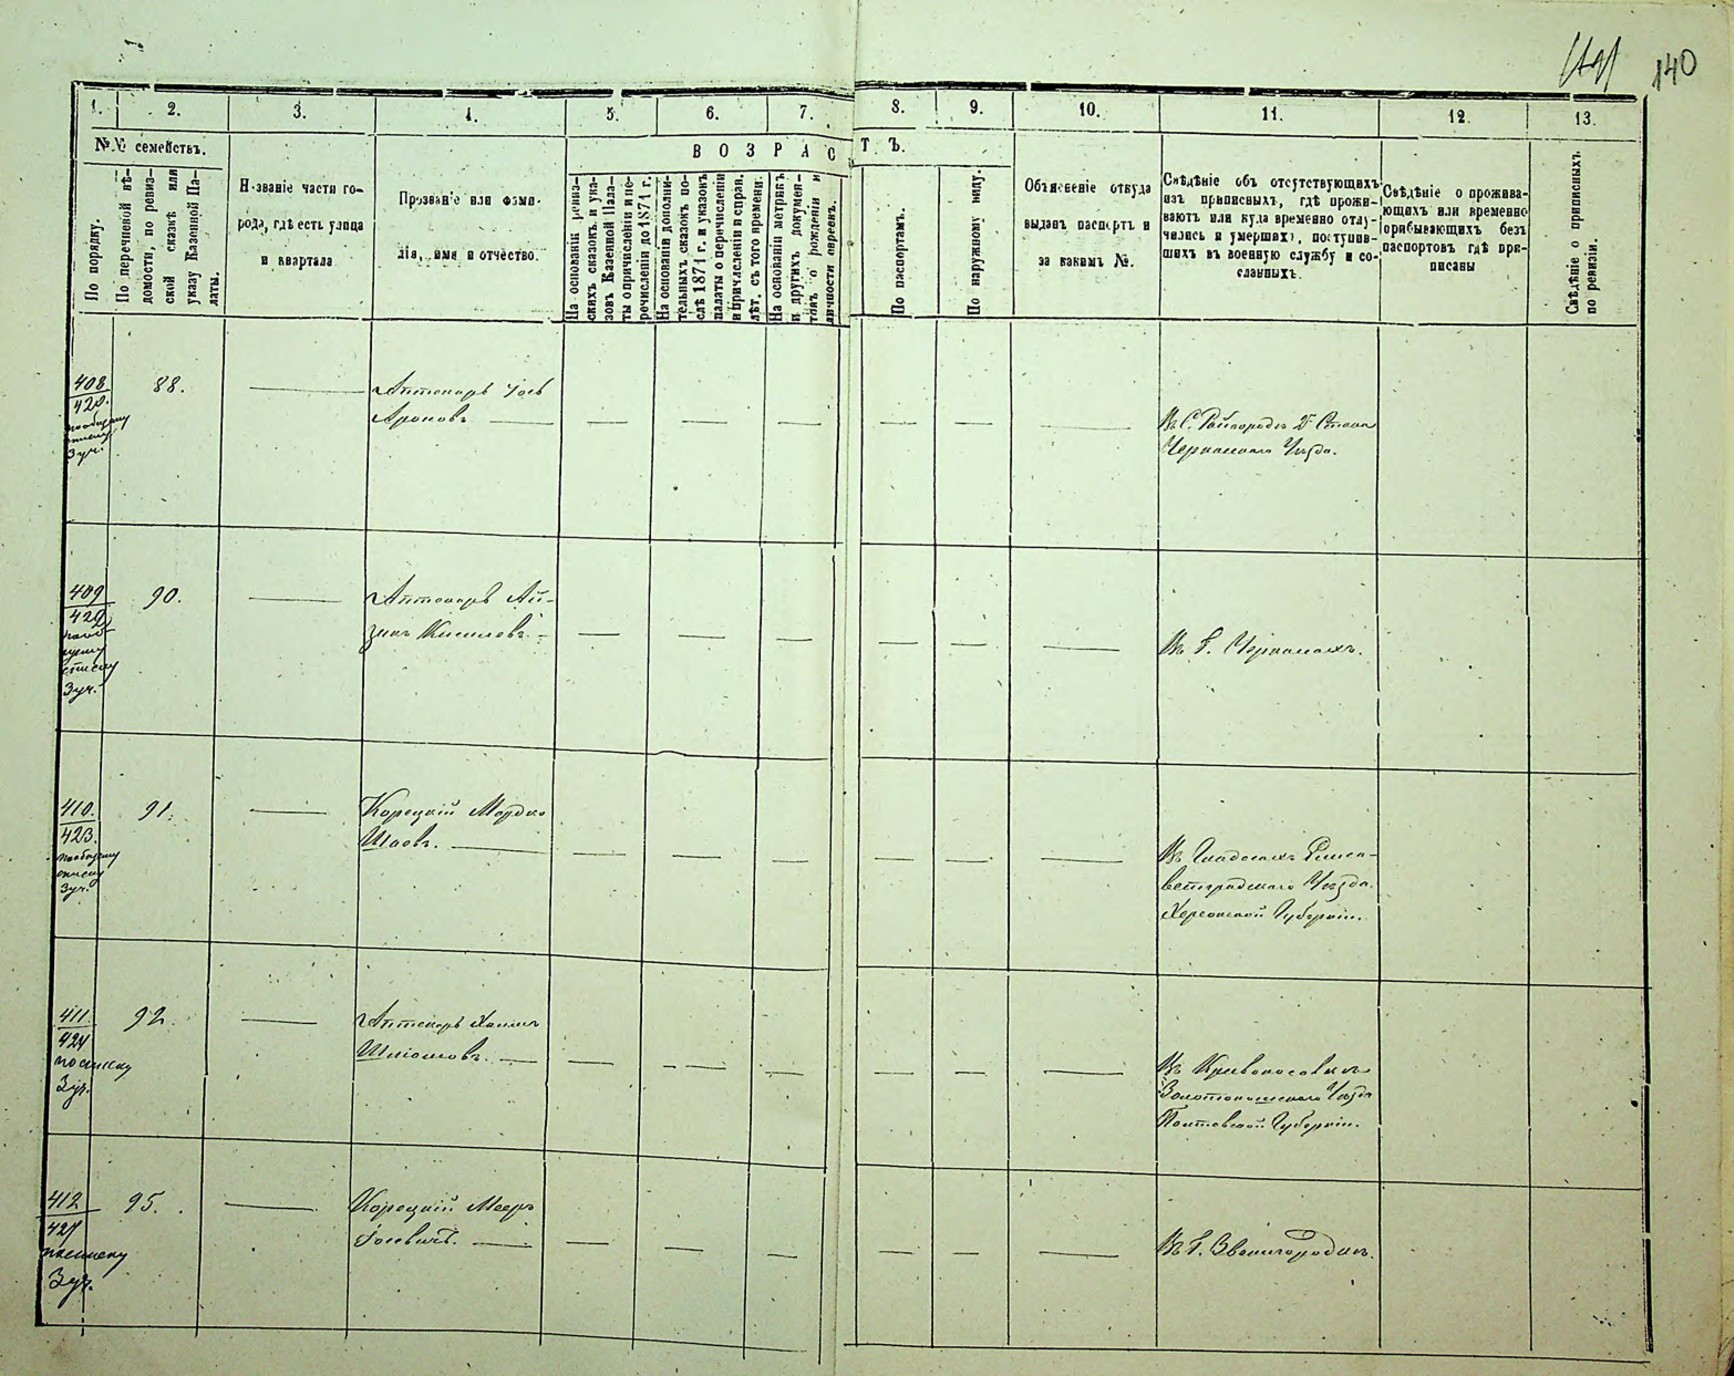 140
1. 2. 3. 4. 5. 6. 7. 8. 9. 10. 11. 12. 13.
№№ семействъ.
По порядку.
По перечневой вѣ-
домости, по ревиз-
ской сказкѣ или
указу Казенной Па-
латы.
Названіе части го-
рода, гдѣ есть улица
и квартала
Прозваніе или фами-
лія, имя и отчество.
ВОЗРАСТЪ.
На основаніи ревиз-
скихъ сказокъ и ука-
зовъ Казенной Пала-
ты о причисленіи и пе-
речисленіи до 1871 г.
На основаніи дополни-
тельныхъ сказокъ по-
слѣ 1871 г. и указовъ
палаты о перечисленіи
и причисленіи и справ.
лѣт. съ того времени.
На основаніи метрикъ
и другихъ докумен-
товъ о рожденіи и
личности евреевъ.
По паспортамъ.
По наружному виду.
Объясненіе откуда
выданъ паспортъ и
за какимъ №.
Свѣдѣніе объ отсутствующихъ
изъ приписныхъ, гдѣ прожи-
ваютъ или куда временно отлу-
чились и умершихъ, поступив-
шихъ въ военную службу и со-
сланныхъ.
Свѣдѣніе о прожива-
ющихъ или временно
прибывающихъ безъ
паспортовъ гдѣ при-
писаны
Свѣдѣніе о приписныхъ
по ревизіи.
408 88. Аптекарь Іось
Ароновъ.
по общему
списку
3 уч.
Въ С. Райгородѣ 2 Стана
Черкасскаго Уѣзда.
409 90. Аптекарь Ай-
зикъ Кисилевъ
по об-
щему
списку
3 уч.
Въ Г. Черкасахъ.
410. 91. Корецкій Мордко
423. Шаовъ.
по общему
списку
3 уч.
Въ Елиса-
ветградскаго Уѣзда
Херсонской Губерніи.
411 92. Аптекарь Хаимъ
424 Шліомовъ.
по списку
3 уч.
Въ Кривоносовкѣ
Золотоношскаго Уѣзда
Полтавской Губерніи.
412 95. Корецкій Мееръ
427 Іосевичъ.
по списку
3 уч.
Въ Г. Звенигородкѣ.